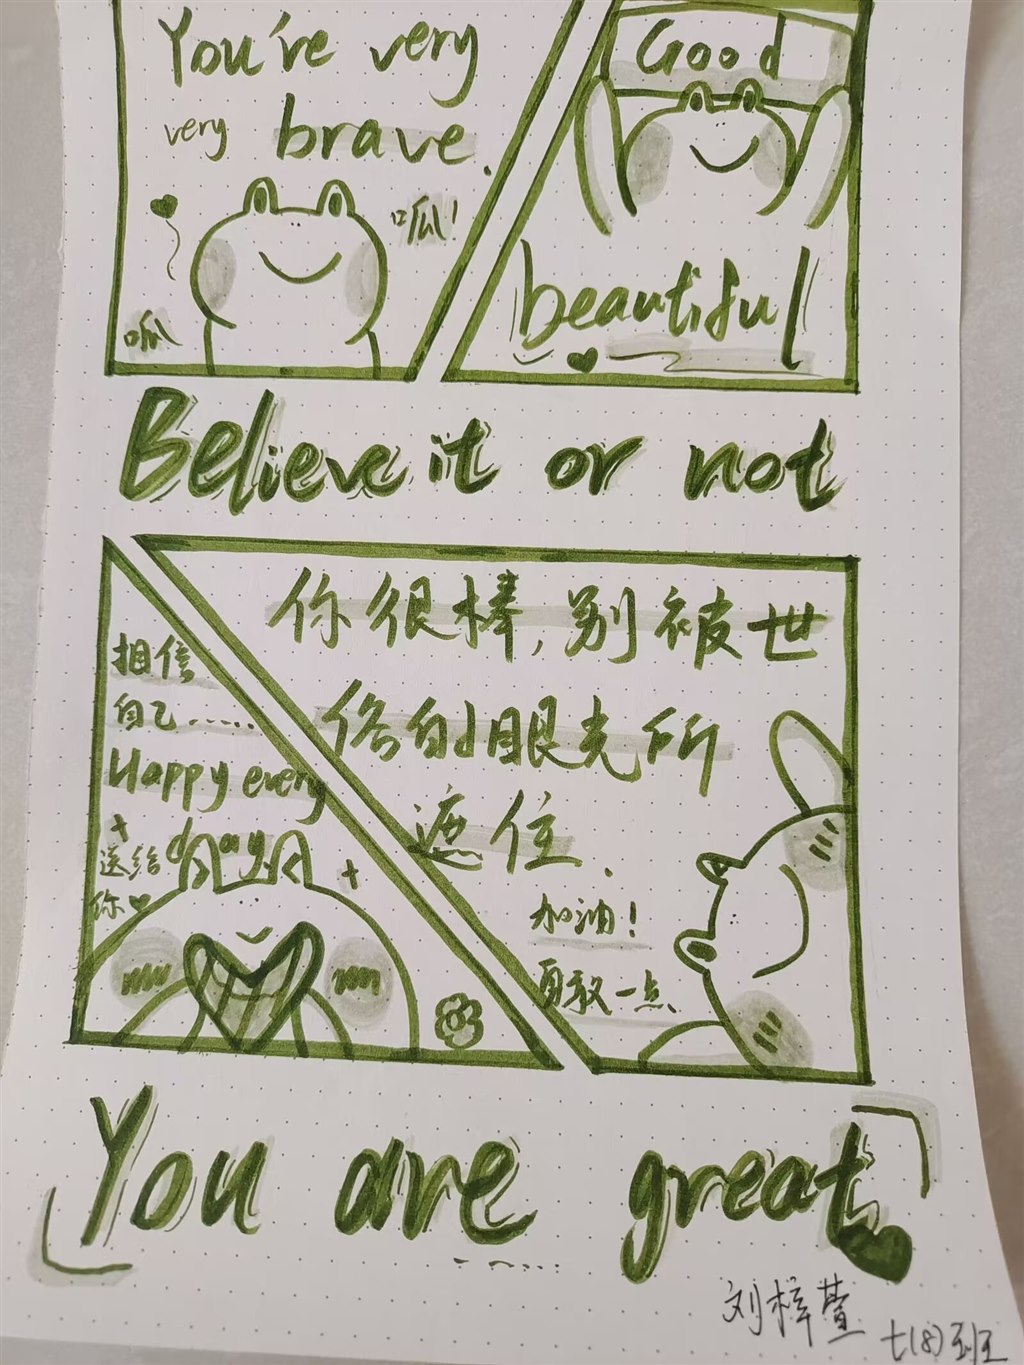 You've very
very brave.
呱!
呱
Good
beautiful
Believe it or not
相信
自己......
Happy every
day
送给
你
你很棒,别被世
俗的眼光所
遮住.
加油!
勇敢一点
You are great
刘梓萱
七(8)班